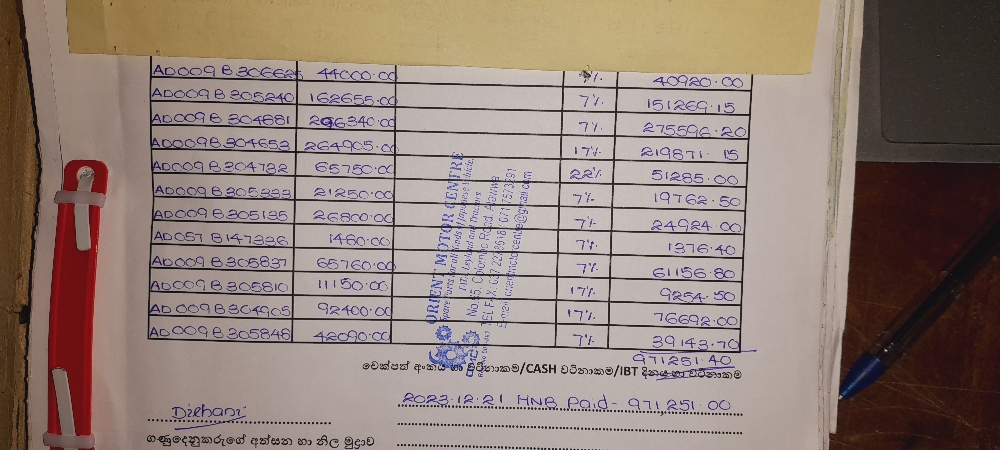 AD009B306625 44000.00 7% 40920.00
AD009B305240 162655.00 7% 151269.15
AD009B304681 296340.00 7% 275596.20
AD009B304653 264905.00 17% 219871.15
AD009B304732 65750.00 22% 51285.00
AD009B305333 21250.00 7% 19762.50
AD009B305135 26800.00 7% 24924.00
AD057B147336 1480.00 7% 1376.40
AD009B305837 65760.00 7% 61156.80
AD009B305810 11150.00 17% 9254.50
AD009B304905 92400.00 17% 76692.00
AD009B305848 42090.00 7% 39143.70
971251.40
ORIENT MOTOR CENTRE
Spare Parts for all kinds of Japanese Vehicle,
No.55, Colombo Road, Alawwa
චෙක්පත් අංකය හා වටිනාකම/CASH වටිනාකම/IBT දිනය හා වටිනාකම
2023.12.21 HNB Paid - 971251.00
Dilhani
ගණුදෙනුකරුගේ අත්සන හා නිල මුද්‍රාව